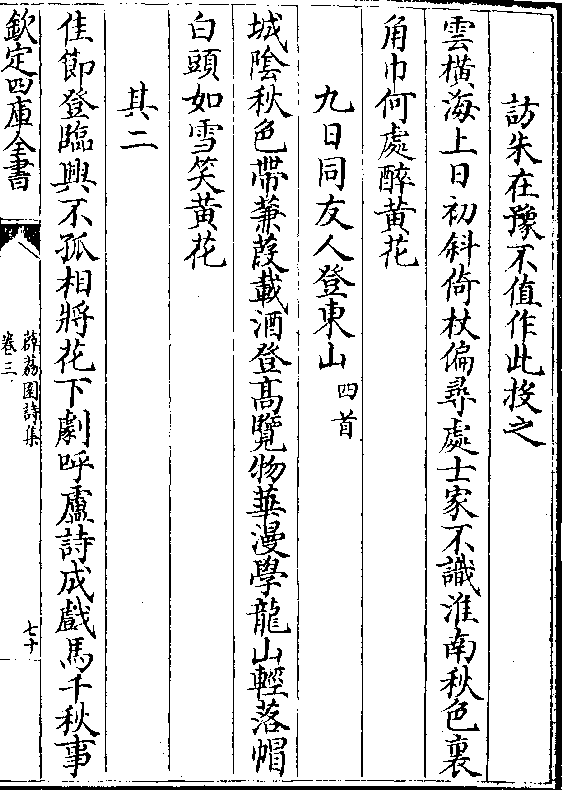 訪朱在豫不值作此投之
雲橫海上日初斜倚杖偏尋處士家不識淮南秋色裏
角巾何處醉黃花
九日同友人登東山四首
城陰秋色帶蒹葭載酒登高覽物華漫學龍山輕落帽
白頭如雪笑黃花
其二
佳節登臨興不孤相將花下劇呼盧詩成戲馬千秋事
欽定四庫全書
薜荔園詩集
卷三
七十